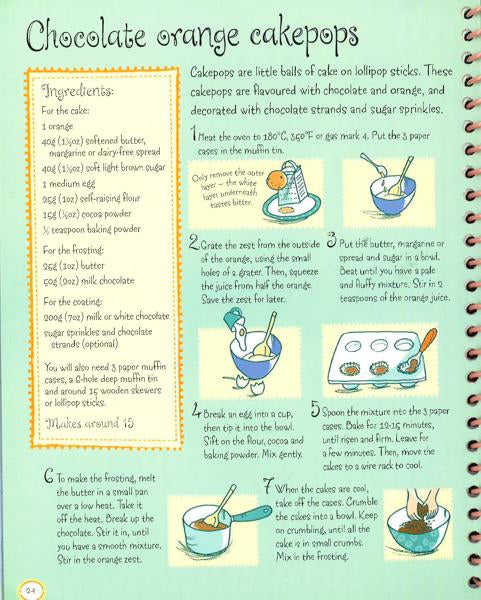 Chocolate orange cakepops
Ingredients:
For the cake:
1 orange
40g (1½oz) softened butter,
margarine or dairy-free spread
40g (1½oz) soft light brown sugar
1 medium egg
25g (1oz) self-raising flour
15g (½oz) cocoa powder
½ teaspoon baking powder
For the frosting:
25g (1oz) butter
50g (2oz) milk chocolate
For the coating:
200g (7oz) milk or white chocolate
sugar sprinkles and chocolate
strands (optional)
You will also need 3 paper muffin
cases, a 6-hole deep muffin tin
and around 15 wooden skewers
or lollipop sticks.
Makes around 15
Cakepops are little balls of cake on lollipop sticks. These
cakepops are flavoured with chocolate and orange, and
decorated with chocolate strands and sugar sprinkles.
1 Heat the oven to 180°C, 350°F or gas mark 4. Put the 3 paper
cases in the muffin tin.
Only remove the outer
layer – the white
layer underneath
tastes bitter.
2 Grate the zest from the outside
of the orange, using the small
holes of a grater. Then, squeeze
the juice from half the orange.
Save the zest for later.
3 Put the butter, margarine or
spread and sugar in a bowl.
Beat until you have a pale
and fluffy mixture. Stir in 2
teaspoons of the orange juice.
4 Break an egg into a cup,
then tip it into the bowl.
Sift on the flour, cocoa and
baking powder. Mix gently.
5 Spoon the mixture into the 3 paper
cases. Bake for 12-15 minutes,
until risen and firm. Leave for
a few minutes. Then, move the
cakes to a wire rack to cool.
6 To make the frosting, melt
the butter in a small pan
over a low heat. Take it
off the heat. Break up the
chocolate. Stir it in, until
you have a smooth mixture.
Stir in the orange zest.
7 When the cakes are cool,
take off the cases. Crumble
the cakes into a bowl. Keep
on crumbling, until all the
cake is in small crumbs.
Mix in the frosting.
24